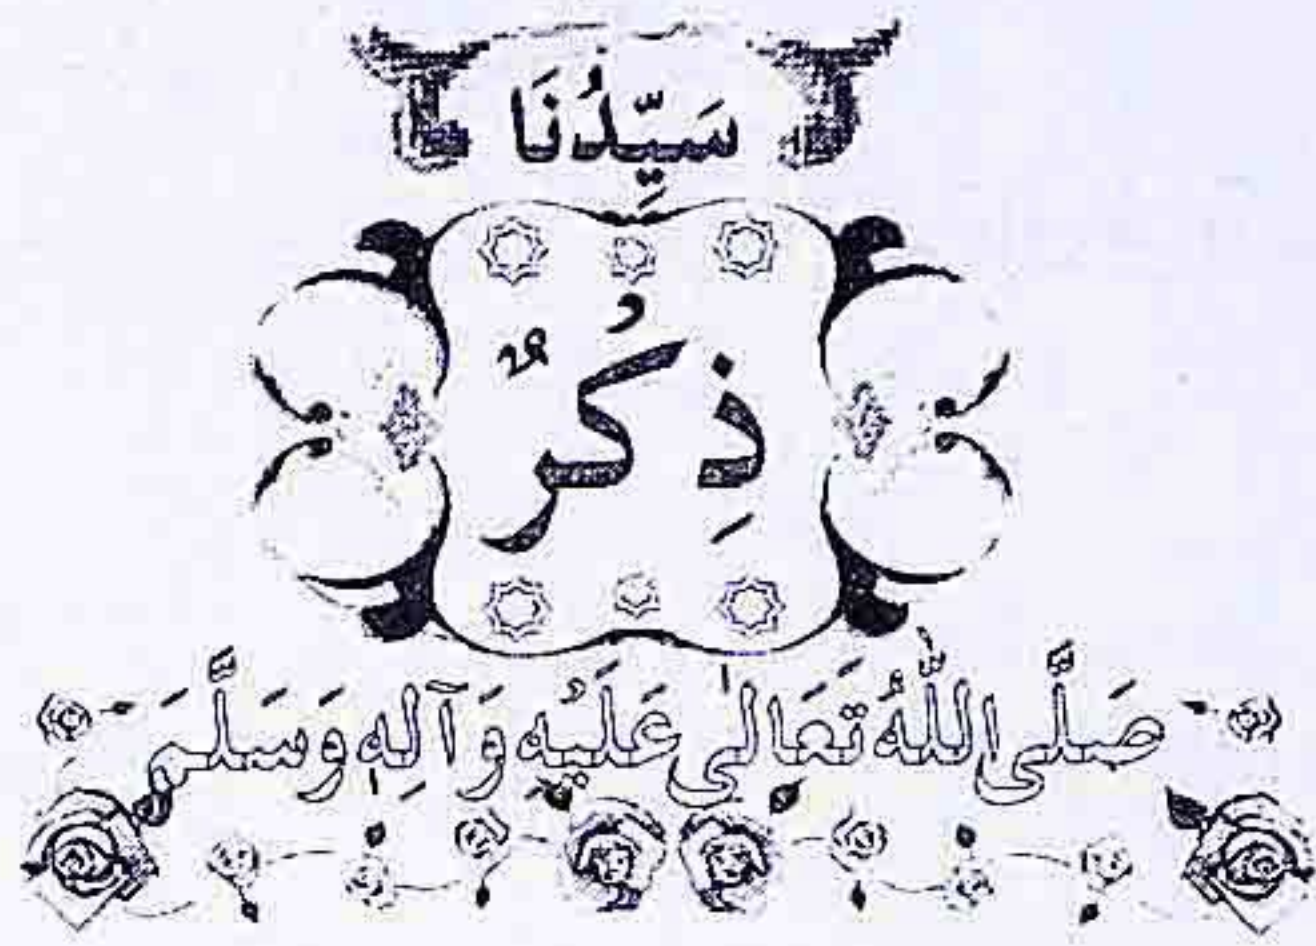 سَيِّدُنَا
ذِكُرٌ
صَلَّى اللّٰهُ تَعَالٰى عَلَيْهِ وَآلِهٖ وَسَلَّمَ